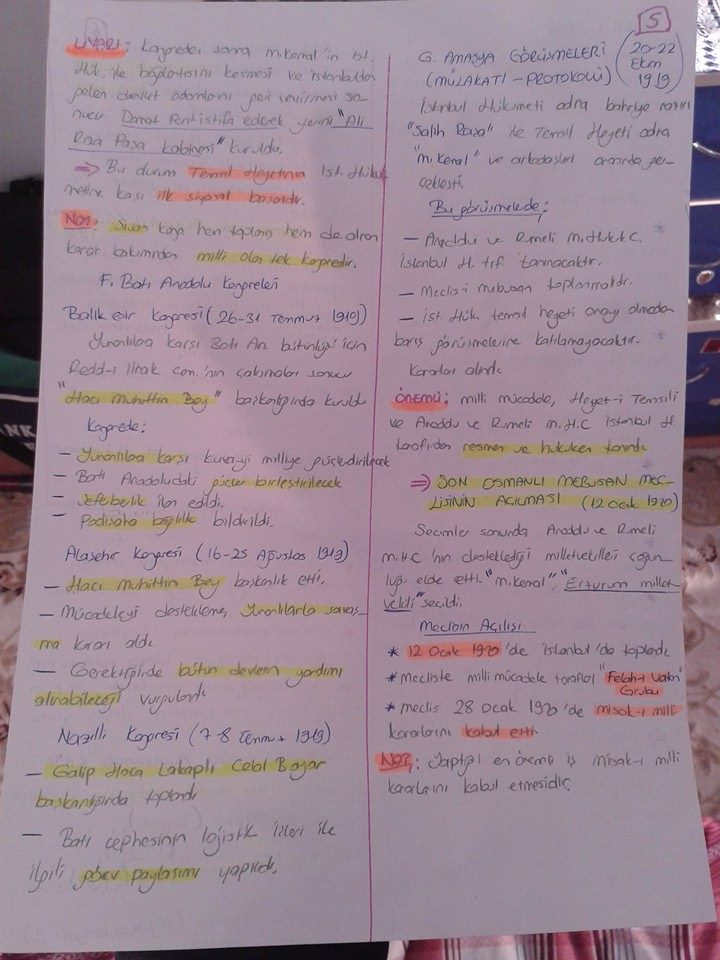 UYARI: Kongreden sonra M.Kemal'in ist.
Hük. ile bağlantısını kesmesi ve istanbuldan
gelen devlet adamlarını geri çevirmesi so-
nucu Damat Ferit istifa edecek yerini "Ali
Rıza Paşa kabinesi" kuruldu.
⇒ Bu durum Temsil Heyetinin ist. Hükü
metine karşı ilk siyasal başarıdır.
NOT: Sivas kong hem toplanış hem de alınan
karar bakımından milli olan tek kongredir.
F. Batı Anadolu Kongreleri
Balıkesir Kongresi (26-31 Temmuz 1919)
Yunanlılara karşı Batı An. bütünlüğü için
Redd-i ilhak cem.'nin çalışmaları sonucu
"Hacı Muhittin Bey" başkanlığında kuruldu
Kongrede:
- Yunanlılara karşı kuvayi milliye güçlendirilecek
- Batı Anadoludaki güçler birleştirilecek
- Seferberlik ilan edildi.
- Padişaha bağlılık bildirildi.
Alaşehir Kongresi (16-25 Ağustos 1919)
- Hacı Muhittin Bey başkanlık etti.
- Mücadeleyi destekleme, Yunanlılarla savaş-
ma kararı aldı.
- Gerektiğinde bütün devletin yardımı
alınabileceği vurgulandı
Nazilli Kongresi (7-8 Temmuz 1919)
- Galip Hoca Lakaplı Celal Bayar
başkanlığında toplandı
- Batı cephesinin lojistik işleri ile
ilgili görev paylaşımı yapıldı.
5
G. AMASYA GÖRÜŞMELERİ (20-22
(MÜLAKATI-PROTOKOLÜ) Ekim
1919)
İstanbul Hükümeti adına bahriye nazırı
"Salih Paşa" ile Temsil Heyeti adına
"M.Kemal" ve arkadaşları arasında ger-
çekleşti.
Bu görüşmelerde;
- Anadolu ve Rumeli M.Hukuk C.
İstanbul H. trf. tanınacaktır.
- Meclis-i mebusan toplanmalıdır.
- ist. Hük. temsil heyeti onayı olmadan
barış görüşmelerine katılamayacaktır.
Kararları alındı.
ÖNEMİ: milli mücadele, Heyet-i Temsili
ve Anadolu ve Rumeli M.H.C İstanbul H.
tarafından resmen ve hukuken tanındı
⇒ SON OSMANLI MEBUSAN MEC-
LİSİNİN AÇILMASI (12 Ocak 1920)
Seçimler sonunda Anadolu ve Rumeli
M.H.C 'nin desteklediği milletvekilleri çoğun
luğu elde etti. "M.Kemal", "Erzurum millet
vekili" seçildi.
Meclisin Açılışı
* 12 Ocak 1920 'de istanbul'da toplandı.
* mecliste milli mücadele taraftarı "Felah-ı Vatan"
Grubu
* meclis 28 Ocak 1920 'de misak-ı milli
kararlarını kabul etti
NOT: Yaptığı en önemli iş Misak-ı milli
kararlarını kabul etmesidir.